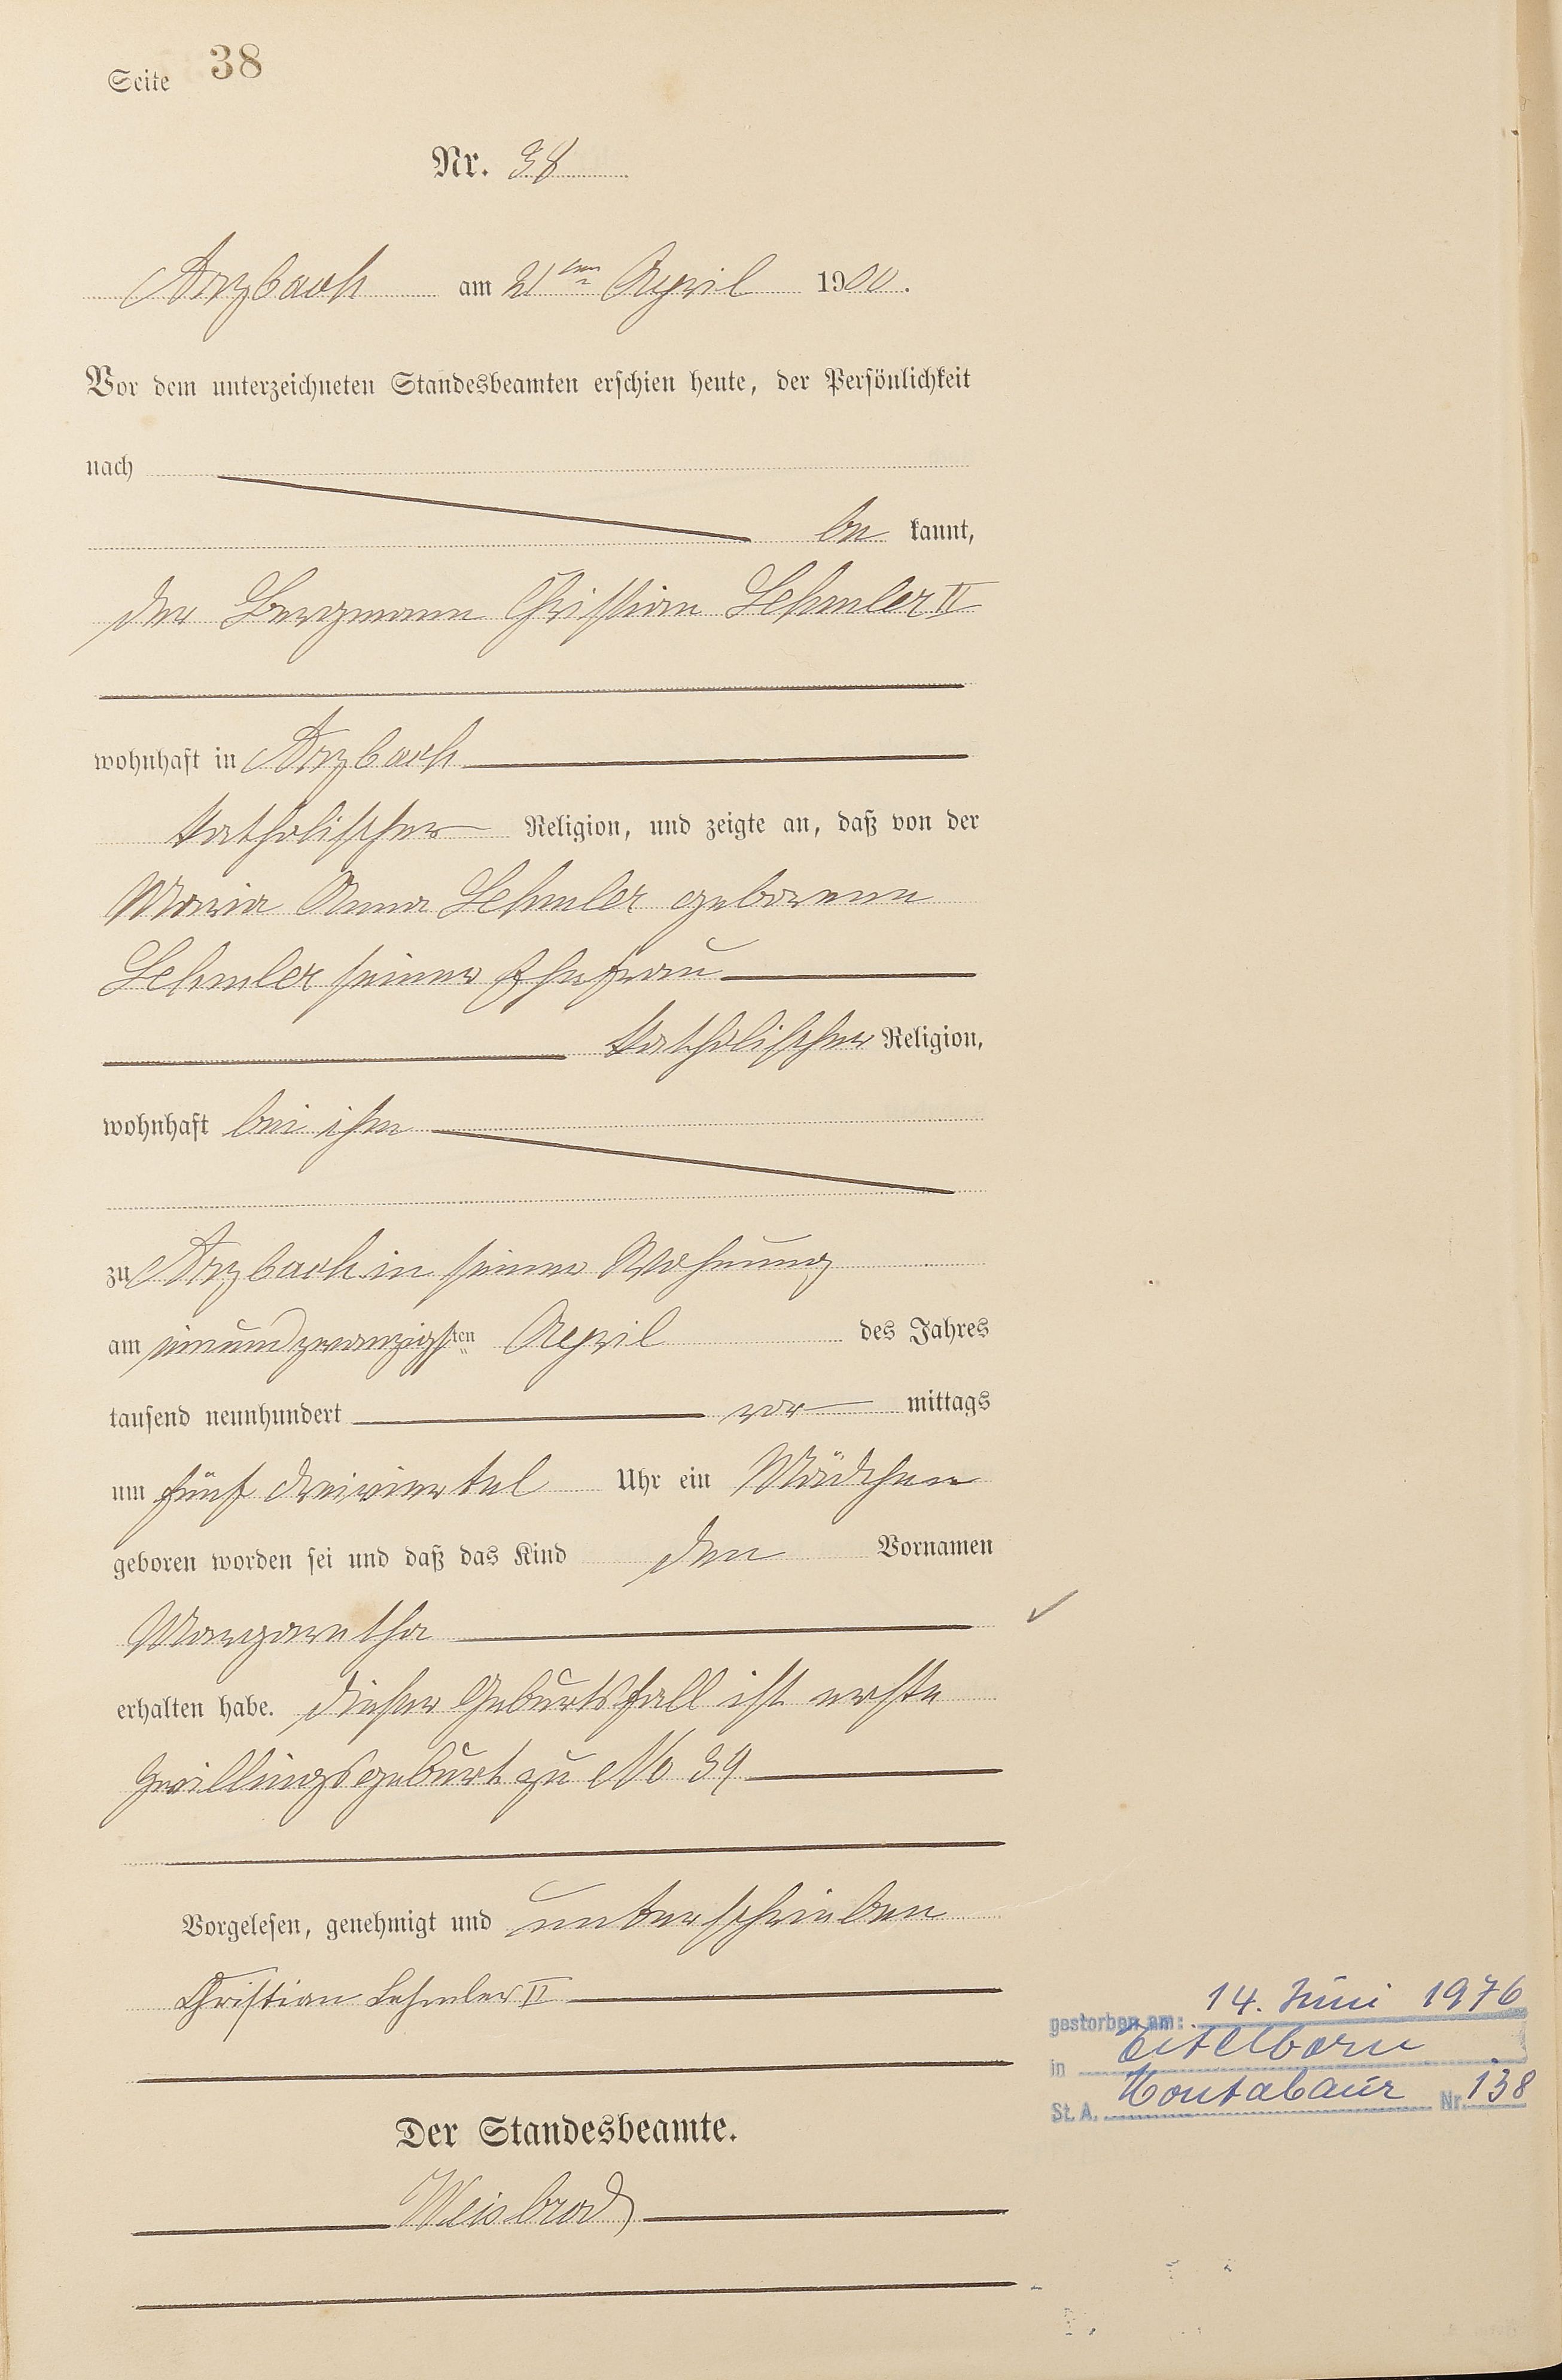 Seite 38
Nr. 38
Arzbach am 21ten April 1900.
Vor dem unterzeichneten Standesbeamten erschien heute, der Persönlichkeit
nach
be kannt,
der Bergmann Christian Lehmler II
wohnhaft in Arzbach
katholischer Religion, und zeigte an, daß von der
Maria Anna Lehmler geborene
Lehmler seiner Ehefrau
katholischer Religion,
wohnhaft bei ihm
zu Arzbach in seiner Wohnung
am einundzwanzigsten April des Jahres
tausend neunhundert vor mittags
um fünf dreiviertel Uhr ein Mädchen
geboren worden sei und daß das Kind den Vornamen
Margaretha
erhalten habe. Dieser Geburtsfall ist erste
Zwillingsgeburt zu No 39
Vorgelesen, genehmigt und unterschrieben
Christian Lehmler II
Der Standesbeamte.
Weisbrod
gestorben am: 14. Juni 1976
in Eitelborn
St. A. Montabaur Nr. 138